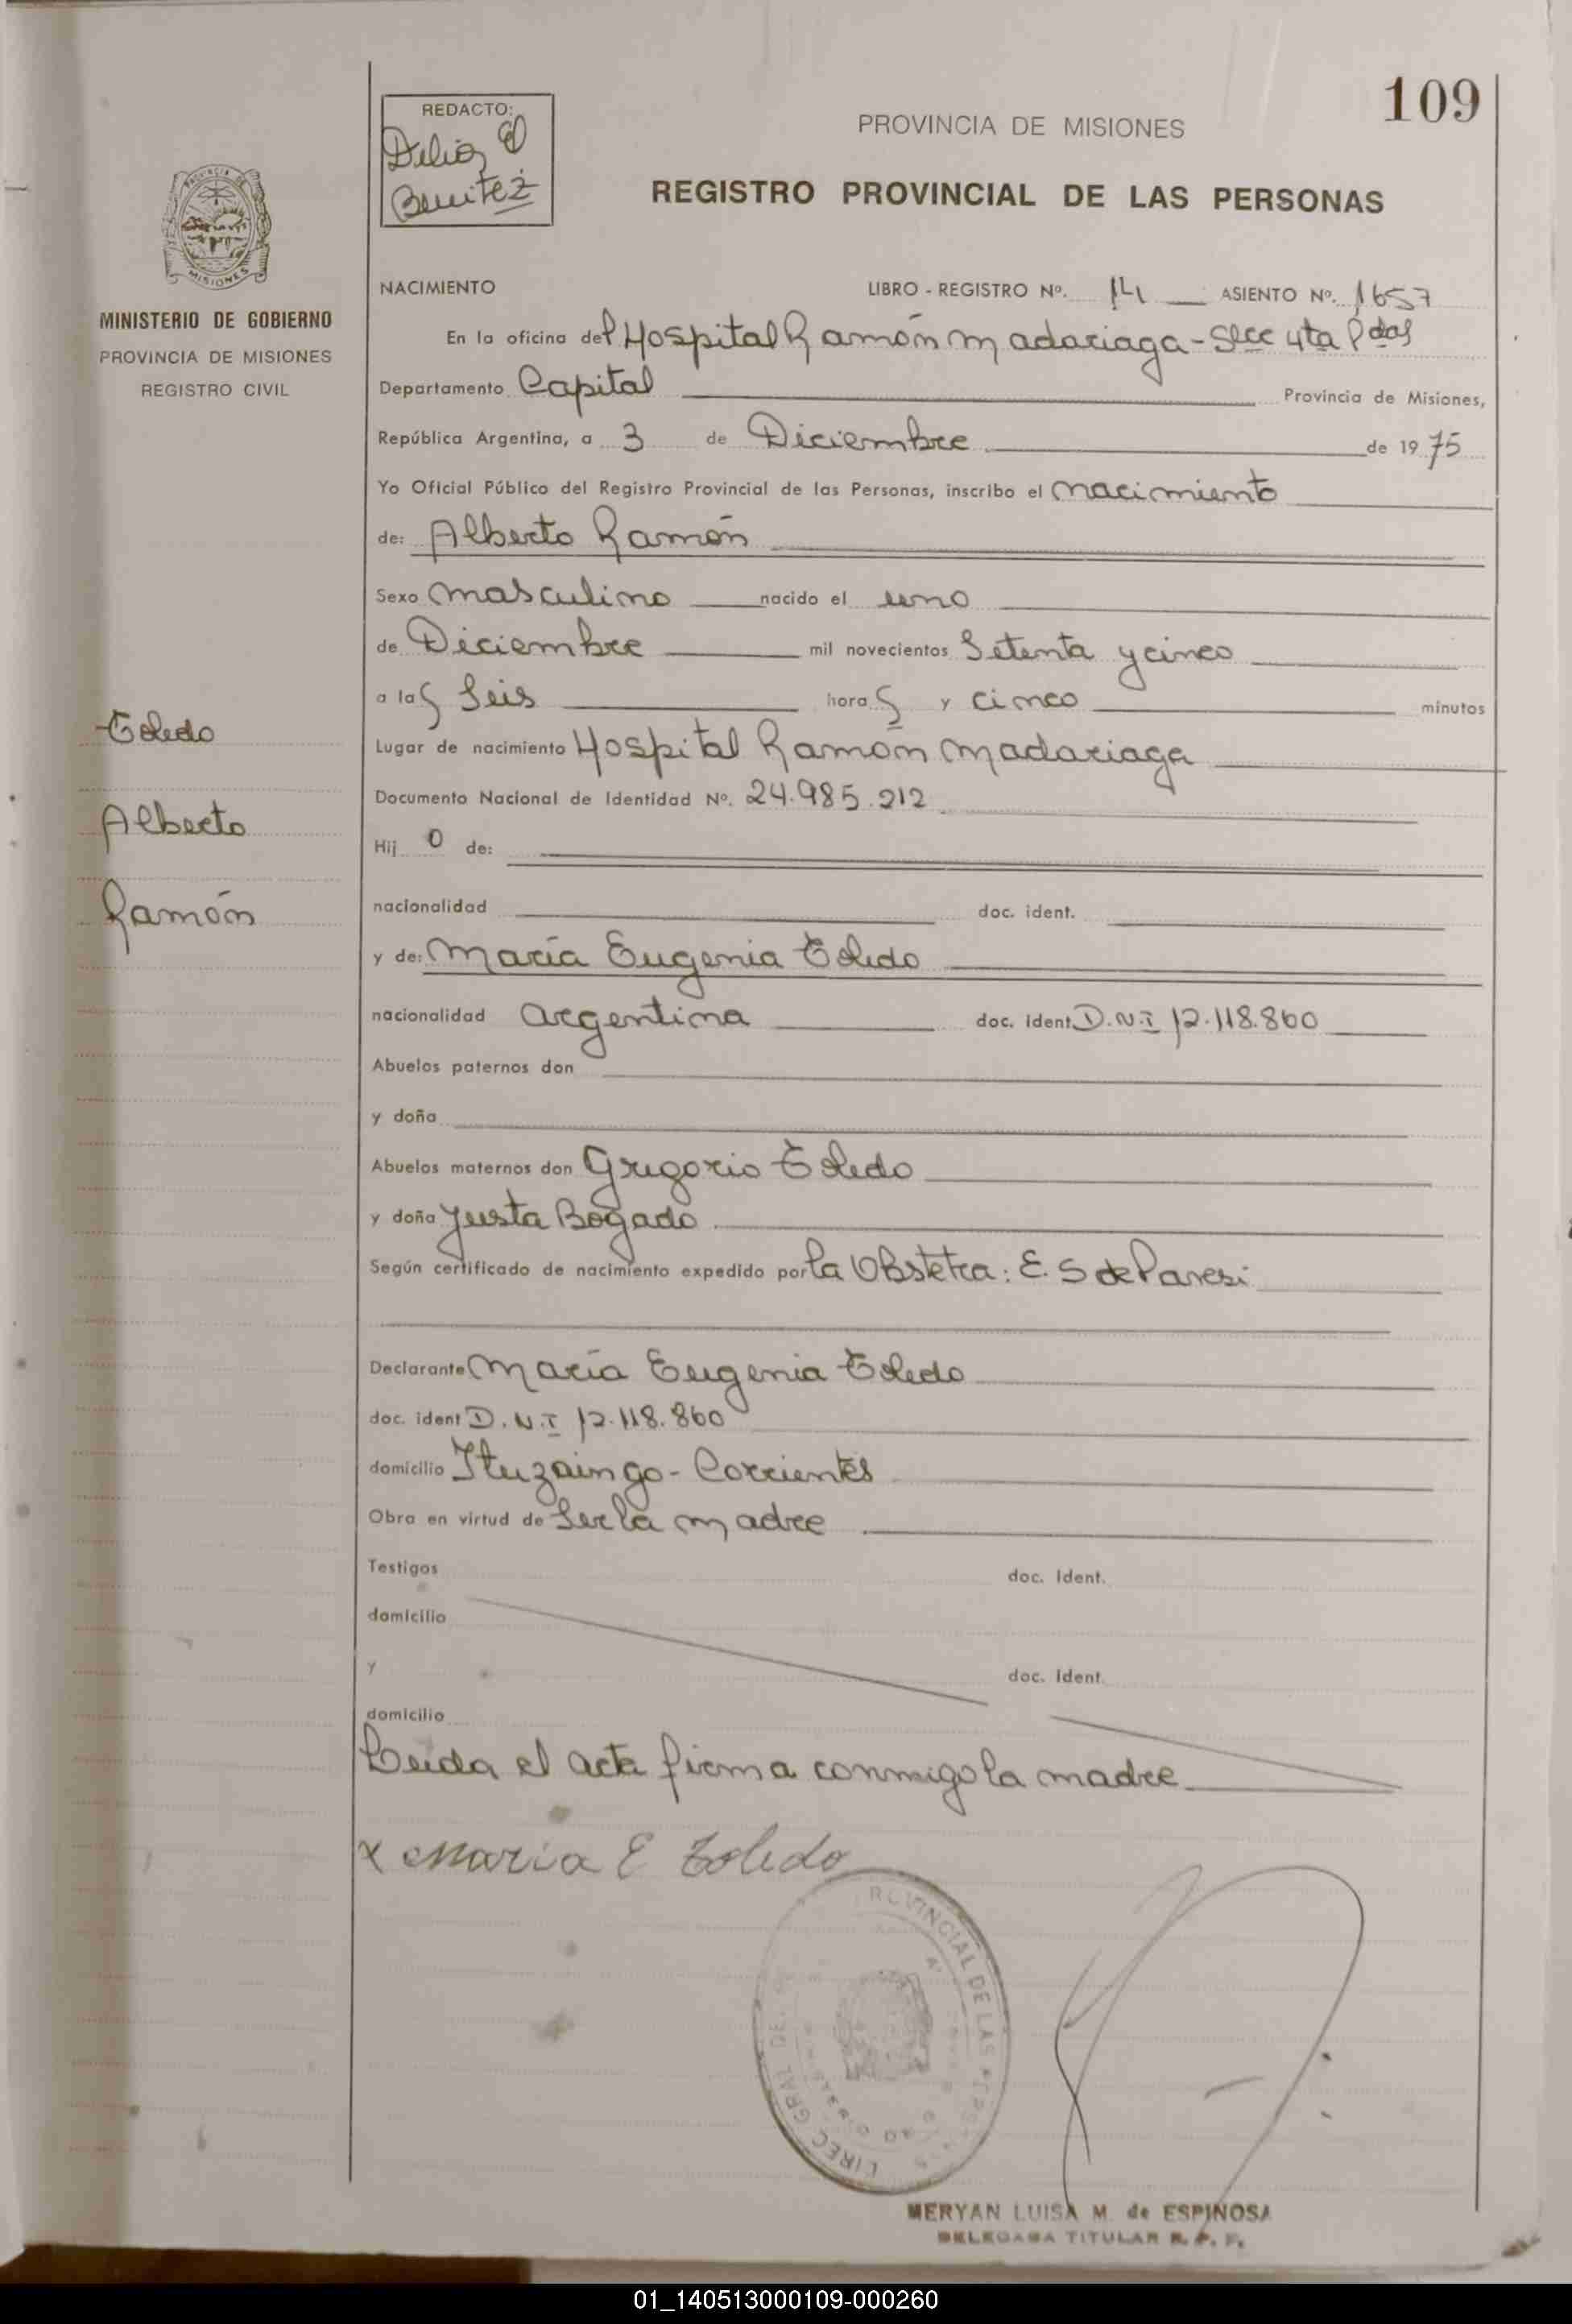 109
REDACTO:
Delia E
Benitez
PROVINCIA DE MISIONES
REGISTRO PROVINCIAL DE LAS PERSONAS
PROVINCIA DE
MISIONES
MINISTERIO DE GOBIERNO
PROVINCIA DE MISIONES
REGISTRO CIVIL
Toledo
Alberto
Ramón
NACIMIENTO LIBRO - REGISTRO Nº. 14 ASIENTO Nº. 1657
En la oficina del Hospital Ramón Madariaga - Secc 4ta Pdas
Departamento Capital Provincia de Misiones,
República Argentina, a 3 de Diciembre de 1975
Yo Oficial Público del Registro Provincial de las Personas, inscribo el nacimiento
de: Alberto Ramón
Sexo masculino nacido el uno
de Diciembre mil novecientos Setenta y cinco
a las Seis horas y cinco minutos
Lugar de nacimiento Hospital Ramón Madariaga
Documento Nacional de Identidad Nº. 24.985.212
Hijo de:
nacionalidad doc. ident.
y de: María Eugenia Toledo
nacionalidad argentina doc. ident D.N.I 12.118.860
Abuelos paternos don
y doña
Abuelos maternos don Gregorio Toledo
y doña Justa Bogado
Según certificado de nacimiento expedido por la Obstetra: E. S de Paresi
Declarante María Eugenia Toledo
doc. ident D.N.I 12.118.860
domicilio Ituzaingo - Corrientes
Obra en virtud de Ser la madre
Testigos doc. ident.
domicilio
y doc. ident.
domicilio
Leida el acta firma conmigo la madre
x Maria E Toledo
DIREC. GRAL. DEL PROVINCIAL DE LAS
MERYAN LUISA M. de ESPINOSA
DELEGADA TITULAR R. P. P.
01_140513000109-000260